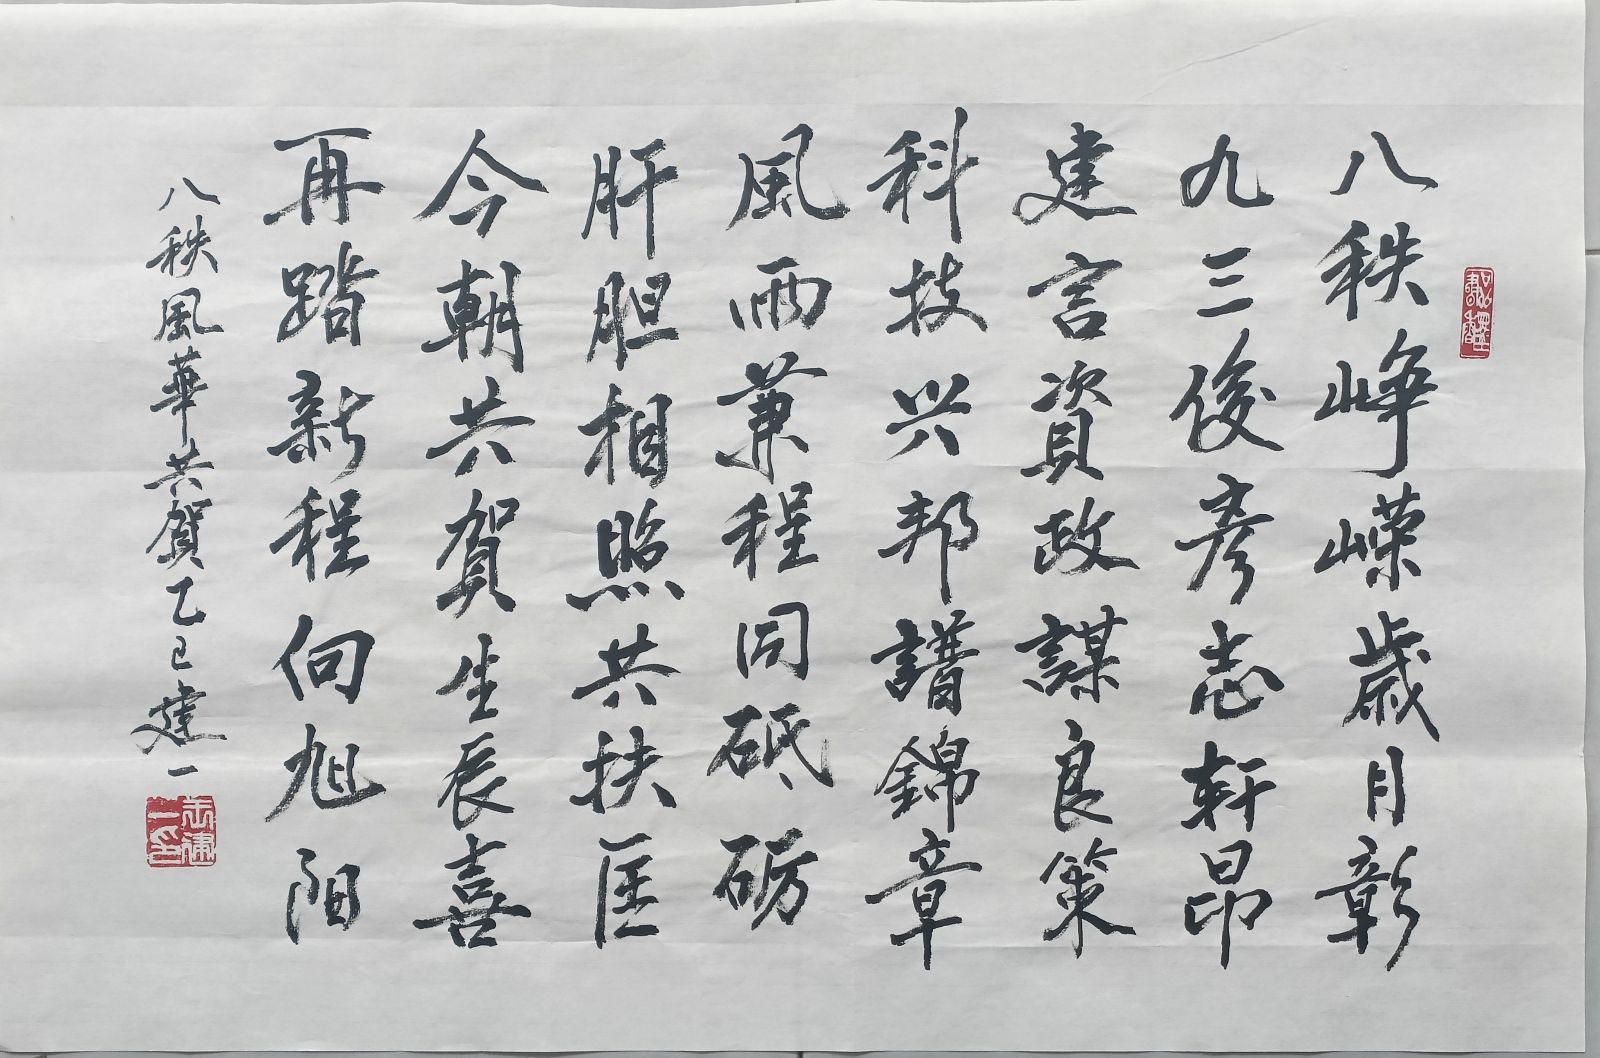 八秩峥嵘歲月彰
九三俊彥志軒昂
建言資政謀良策
科技兴邦譜錦章
風雨兼程同砥砺
肝胆相照共扶匡
今朝共賀生辰喜
再踏新程向旭阳
八秩風華共賀乙巳建一